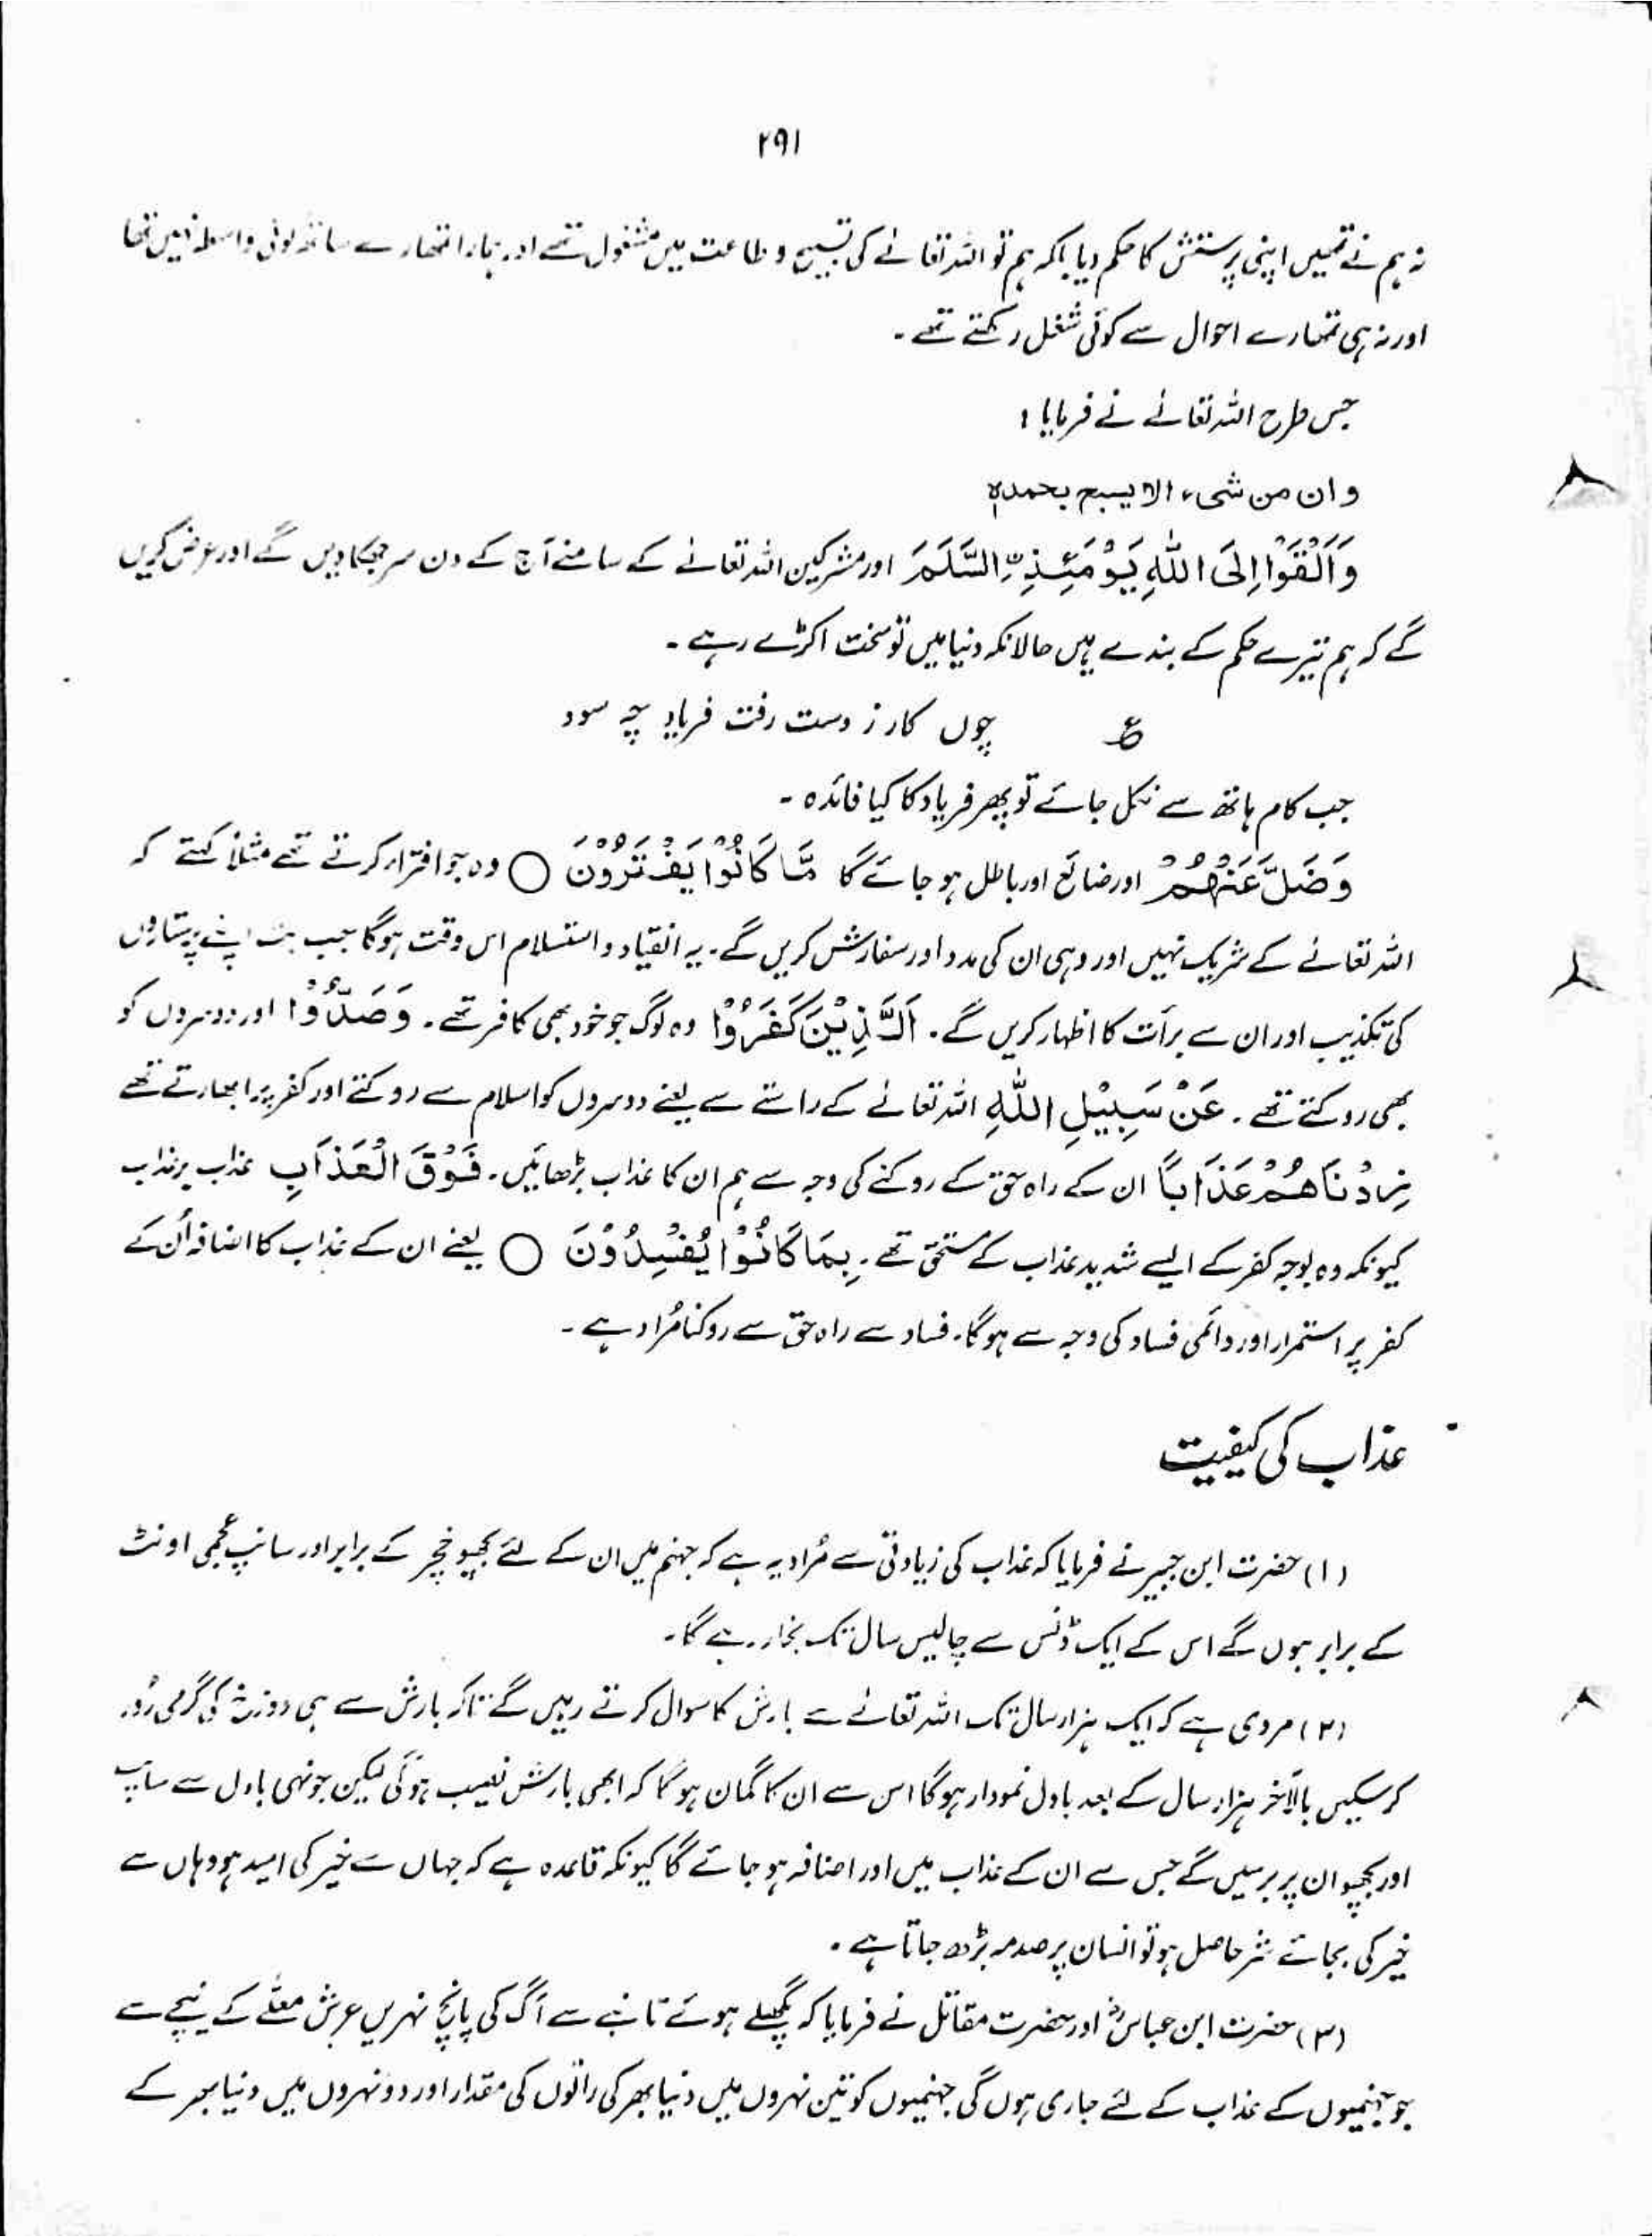 ۲۹۱
نہ ہم نے تمہیں اپنی پرستش کا حکم دیا بلکہ ہم تو اللہ تعالےٰ کی تسبیح و طاعت میں مشغول تھے اور ہمارا تمھارے ساتھ کوئی واسطہ نہیں تھا
اور نہ ہی تمھارے احوال سے کوئی شغل رکھتے تھے۔
جس طرح اللہ تعالےٰ نے فرمایا :
و ان من شیء الا یسبح بحمدہ
وَاَلْقَوْا اِلَی اللّٰہِ یَوْمَئِذِ ۨالسَّلَمَ اور مشرکین اللہ تعالےٰ کے سامنے آج کے دن سر جھکا دیں گے اور عرض کریں
گے کہ ہم تیرے حکم کے بندے ہیں حالانکہ دنیا میں تو سخت اکڑے رہے۔
ع چوں کار ز دست رفت فریاد چہ سود
جب کام ہاتھ سے نکل جائے تو پھر فریاد کا کیا فائدہ۔
وَضَلَّ عَنْھُمْ اور ضائع اور باطل ہو جائے گا مَّا کَانُوْا یَفْتَرُوْنَ ○ وہ جو افترا کرتے تھے مثلاً کہتے کہ
اللہ تعالےٰ کے شریک نہیں اور وہی ان کی مدد اور سفارش کریں گے۔ یہ انقیاد و استسلام اس وقت ہوگا جب بت اپنے پرستاروں
کی تکذیب اور ان سے برأت کا اظہار کریں گے۔ اَلَّذِیْنَ کَفَرُوْا وہ لوگ جو خود بھی کافر تھے۔ وَصَدُّوْا اور دوسروں کو
بھی روکتے تھے۔ عَنْ سَبِیْلِ اللّٰہِ اللہ تعالےٰ کے راستے سے یعنے دوسروں کو اسلام سے روکتے اور کفر پر ابھارتے تھے
زِدْنَاھُمْ عَذَابًا ان کے راہ حق کے روکنے کی وجہ سے ہم ان کا عذاب بڑھائیں۔ فَوْقَ الْعَذَابِ عذاب پر عذاب
کیونکہ وہ بوجہ کفر کے ایسے شدید عذاب کے مستحق تھے۔ بِمَا کَانُوْا یُفْسِدُوْنَ ○ یعنے ان کے عذاب کا اضافہ اُن کے
کفر پر استمرار اور دائمی فساد کی وجہ سے ہوگا۔ فساد سے راہ حق سے روکنا مُراد ہے۔
عذاب کی کیفیت
(۱) حضرت ابن جبیر نے فرمایا کہ عذاب کی زیادتی سے مُراد یہ ہے کہ جہنم میں ان کے لئے بچھو خچر کے برابر اور سانپ عجمی اونٹ
کے برابر ہوں گے اس کے ایک ڈنس سے چالیس سال تک بخار رہے گا۔
(۲) مروی ہے کہ ایک ہزار سال تک اللہ تعالےٰ سے بارش کا سوال کرتے رہیں گے تاکہ بارش سے ہی دوزخ کی گرمی دُور
کر سکیں بالآخر ہزار سال کے بعد بادل نمودار ہوگا اس سے ان کا گمان ہوگا کہ ابھی بارش نصیب ہوگی لیکن جونہی بادل سے سانپ
اور بچھو ان پر برسیں گے جس سے ان کے عذاب میں اور اضافہ ہو جائے گا کیونکہ قاعدہ ہے کہ جہاں سے خیر کی امید ہو وہاں سے
خیر کی بجائے شر حاصل ہو تو انسان پر صدمہ بڑھ جاتا ہے۔
(۳) حضرت ابن عباسؓ اور حضرت مقاتل نے فرمایا کہ پگھلے ہوئے تانبے سے آگ کی پانچ نہریں عرش معلّے کے نیچے سے
جو جہنمیوں کے عذاب کے لئے جاری ہوں گی جہنمیوں کو تین نہروں میں دنیا بھر کی راتوں کی مقدار اور دو نہروں میں دنیا بھر کے